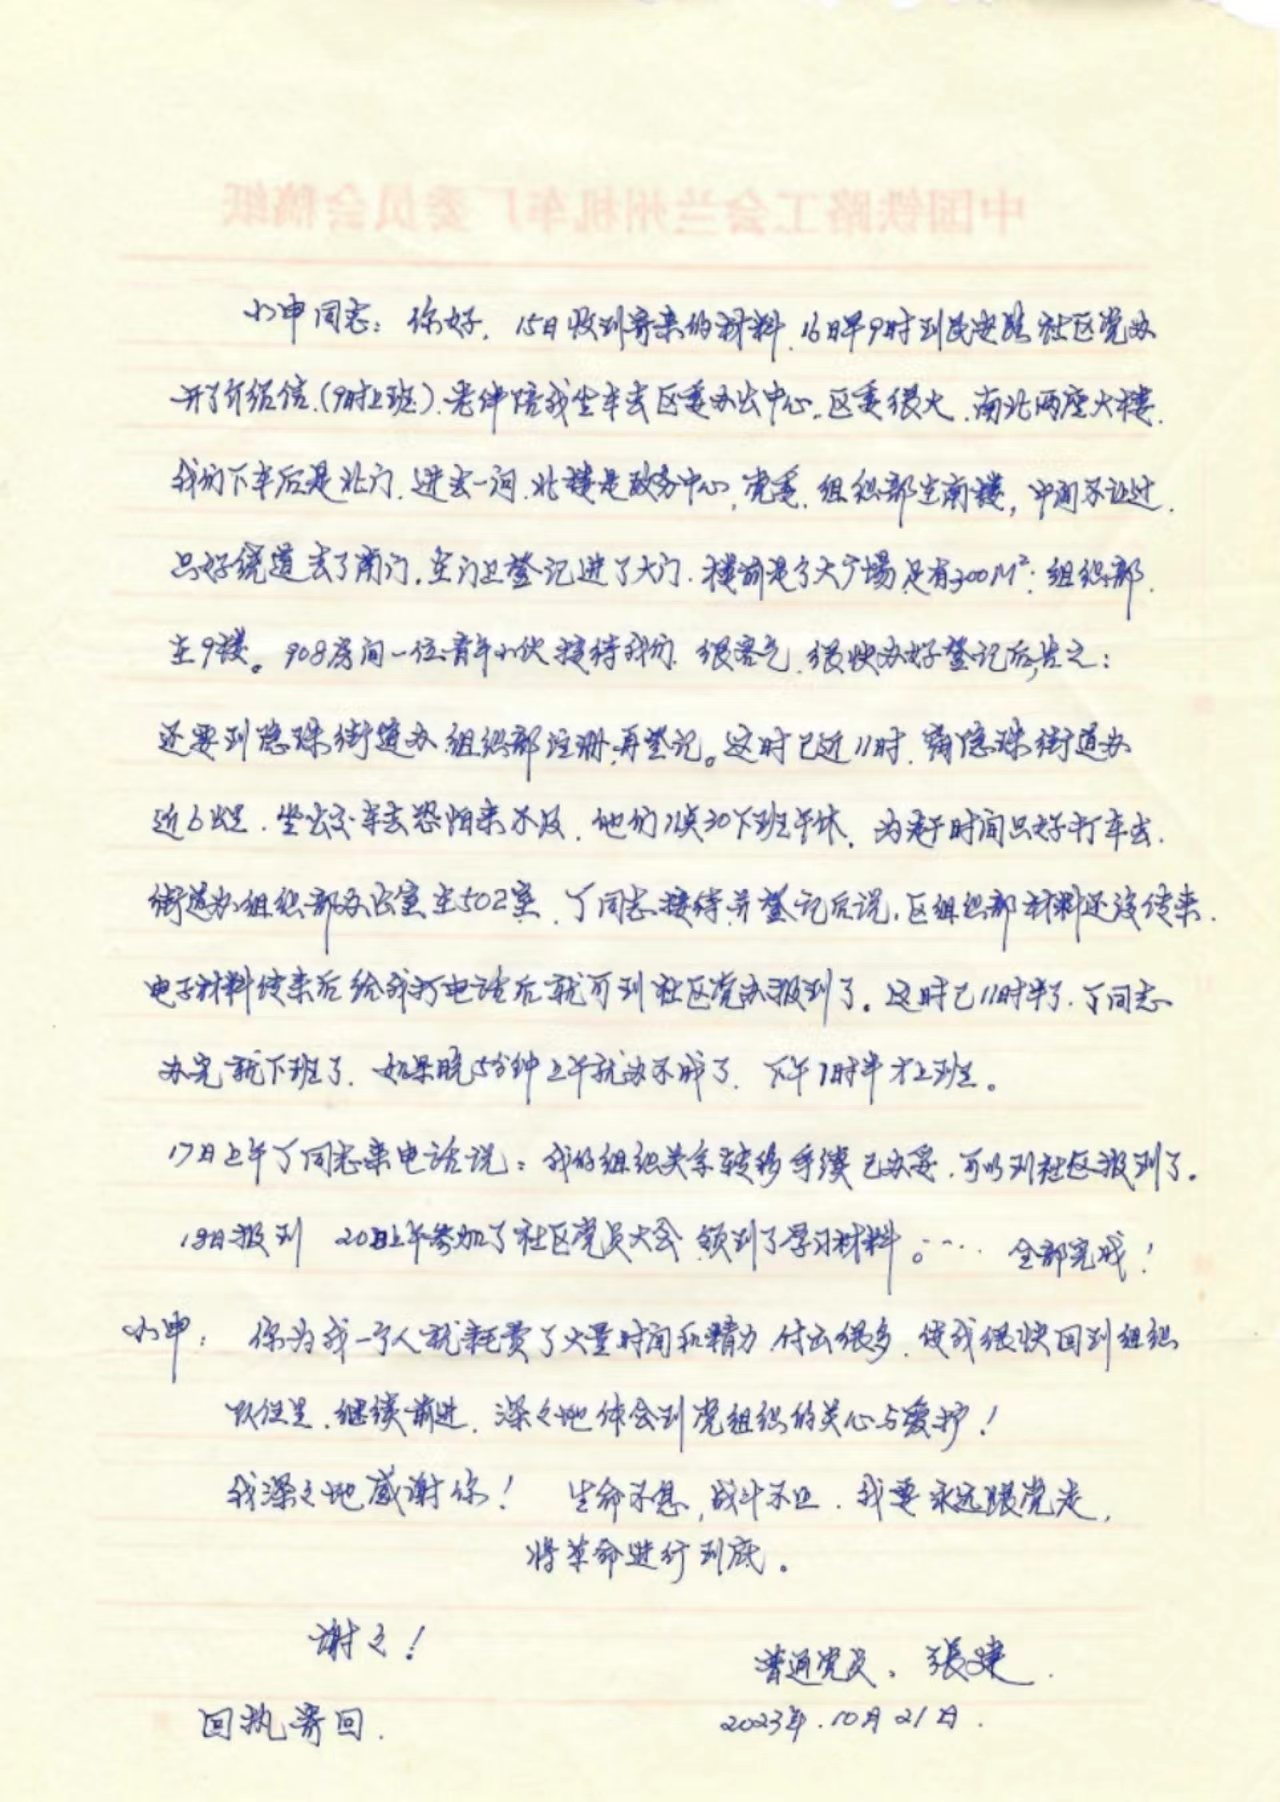 中国铁路工会兰州机车厂委员会稿纸
小申同志：你好，15日收到寄来的材料，16日早9时到民安路社区党办
开了介绍信，(9时上班)，老伴陪我坐车去区委办公中心。区委很大，南北两座大楼，
我们下车后是北门，进去一问，北楼是政务中心，党委，组织部在南楼，中间不让过，
只好绕道去了南门，在门卫登记进了大门，楼前是个大广场足有300M²；组织部
在9楼。908房间一位青年小伙接待我们，很客气，很快办好登记后告之：
还要到隐珠街道办组织部注册，再登记。这时已近11时，离隐珠街道办
近6公里，坐公交车去恐怕来不及，他们11点30下班午休，为赶时间只好打车去，
街道办组织部办公室在502室，丁同志接待并登记后说，区组织部材料还没传来，
电子材料传来后给我打电话后就可到社区党办报到了。这时已11时半了，丁同志
办完就下班了，如果晚5分钟上午就办不成了，下午1时半才上班。
17日上午丁同志来电话说：我的组织关系转移手续已办妥，可以到社区报到了。
18日报到 20日上午参加了社区党员大会，领到了学习材料。…… 全部完成！
小申： 你为我一个人就耗费了大量时间和精力，付出很多，使我很快回到组织
队伍里，继续前进，深々地体会到党组织的关心与爱护！
我深々地感谢你！ 生命不息，战斗不止，我要永远跟党走，
将革命进行到底。
谢々！
普通党员：張建
回执寄回.
2023年.10月21日.